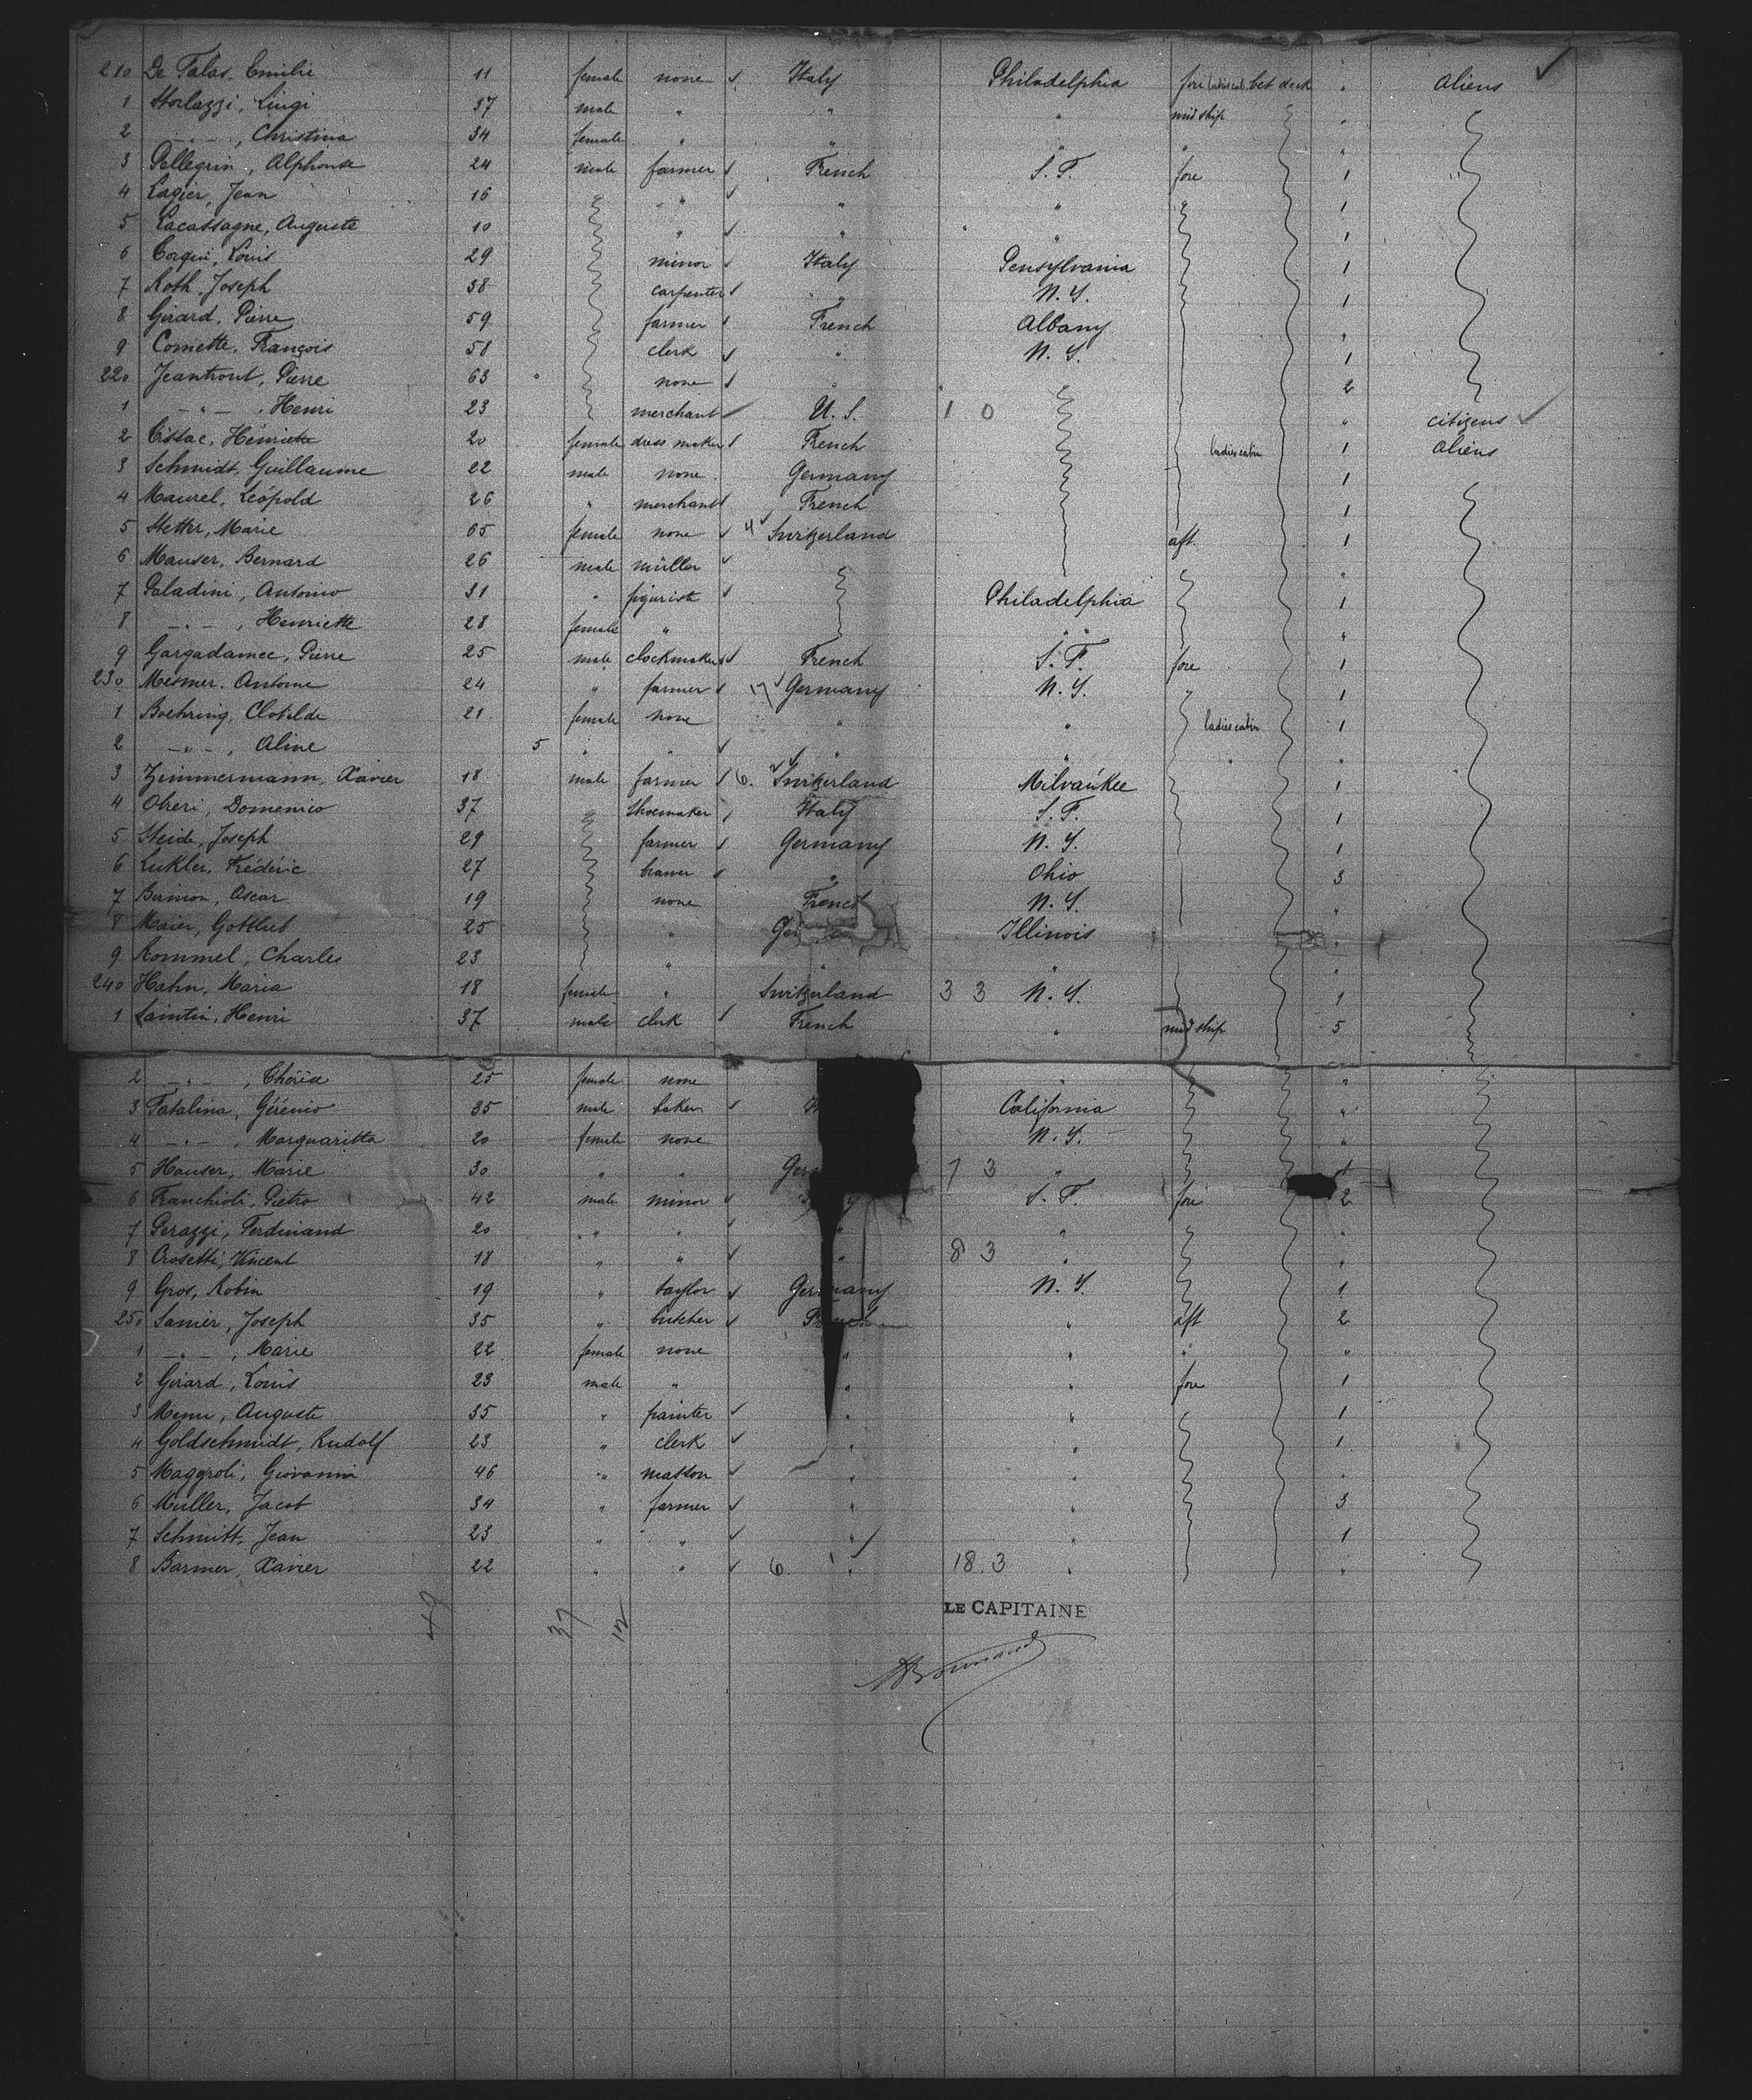 210 De Talas, Emilie 11 female none Italy Philadelphia fore ladies cab. bet deck " aliens
1 Storlazzi, Luigi 37 male " " " mid ship "
2 -"-, Christina 34 female " " " " "
3 Pellegrin, Alphonse 24 male farmer French S. F. fore 1
4 Lagier, Jean 16 " " " " " 1
5 Lacassagne, Auguste 10 " " " 1
6 Louis 29 minor Italy Pensylvania 1
7 Roth, Joseph 38 carpenter " N. Y. 1
8 Girard, Pierre 59 farmer French Albany "
9 Comette, François 58 clerk " N. Y. 1
220 Jeantrout, Pierre 63 none " 2
1 -"-, Henri 23 merchant U. S. 1 0 " citizens
2 Cissac, Henriette 20 female dress maker French ladies cabin 1 aliens
3 Schmidt, Guillaume 22 male none Germany 1
4 Maurel, Léopold 26 " merchant French 1
5 Stetter, Marie 65 female none 4 Switzerland aft. 1
6 Mauser, Bernard 26 male müller "
7 Paladini, Antonio 31 " figuriste Philadelphia 1
8 -"-, Henriette 28 female " " "
9 Gargadamec, Pierre 25 male clockmaker French S. F. fore 1
230 Mesmer, Antoine 24 " farmer 17 Germany N. Y. " 1
1 Boehring, Clotilde 21 female none " " ladies cabin 1
2 -"-, Aline 5 " " " " " "
3 Zimmermann, Xavier 18 male farmer 6. Switzerland Milvaukee 1
4 Oberi, Domenico 37 Shoemaker Italy S. F. 1
5 Steide, Joseph 29 farmer Germany N. Y. 1
6 Lukler, Frédéric 27 brawer " Ohio 3
7 Bermon, Oscar 19 none French N. Y. "
8 Maier, Gottlieb 25 " Ger Illinois "
9 Rommel, Charles 23 " " " "
240 Hahn, Maria 18 female " Switzerland 3 3 N. Y. 1
1 Saintin, Henri 37 male clerk French " mid ship 5
2 -"-, Thérèse 25 female none " "
3 Fatalina, Gérémio 35 male baker California "
4 -"-, Marguaritta 20 female none N. Y. "
5 Hauser, Marie 30 " " Ger 7 3 " 1
6 Franchioli, Pietro 42 male minor S. F. fore 2
7 Perazzi, Ferdinand 20 " " " " "
8 Crosetti, Vincent 18 " " " 8 3 " "
9 Gros, Robin 19 " taylor Germany N. Y. 1
250 Samier, Joseph 35 " butcher French " aft 2
1 -"-, Marie 22 female none " " " "
2 Girard, Louis 23 male " " " fore 1
3 Menu, Auguste 35 " painter " " 1
4 Goldschmidt, Rudolf 23 " clerk " " 1
5 Maggroli, Giovanni 46 " masson " " "
6 Muller, Jacob 34 " farmer " " 3
7 Schmitt, Jean 23 " " " " 1
8 Barmer, Xavier 22 " " 6 " 18.3 " "
49 37 12
LE CAPITAINE